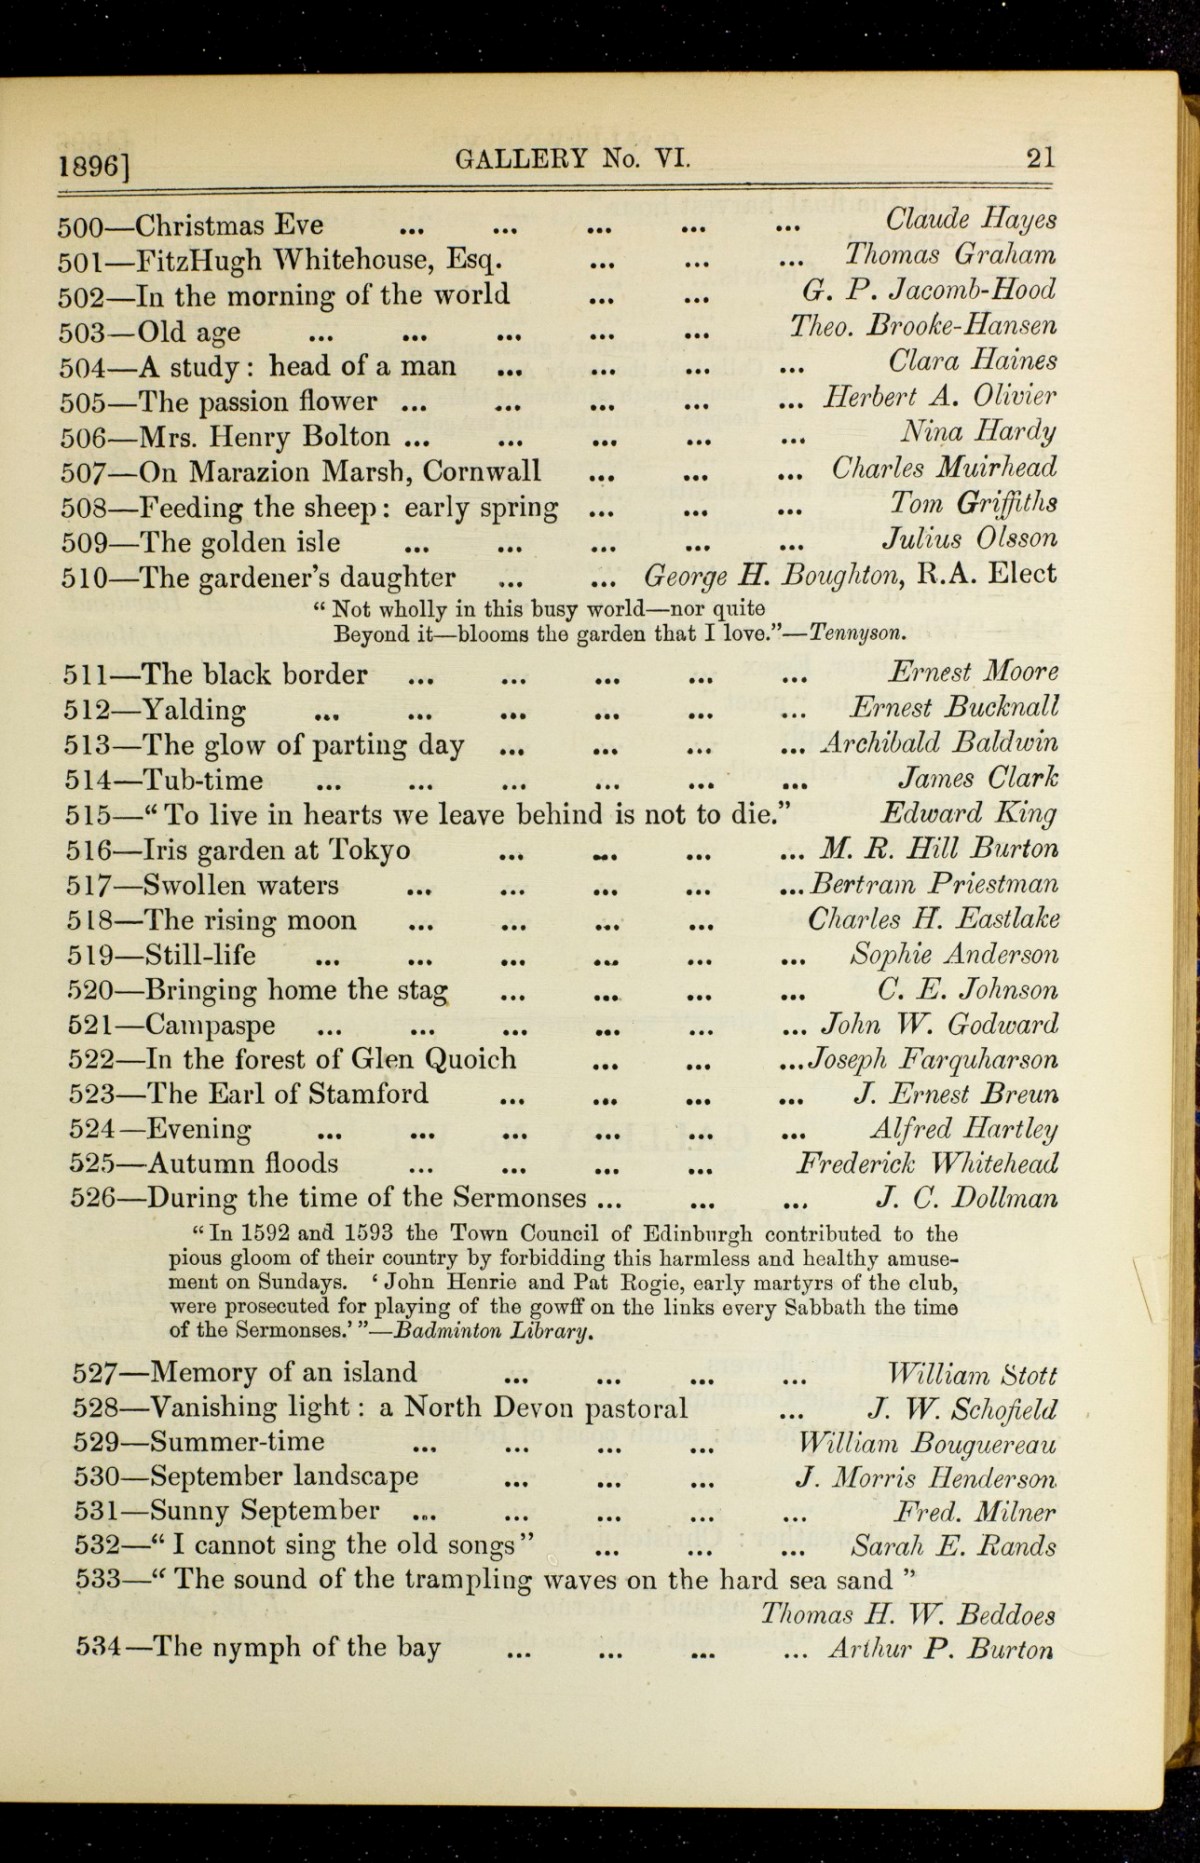 1896] GALLERY No. VI. 21
500—Christmas Eve ... ... ... ... ... Claude Hayes
501—FitzHugh Whitehouse, Esq. ... ... ... Thomas Graham
502—In the morning of the world ... ... G. P. Jacomb-Hood
503—Old age ... ... ... ... ... Theo. Brooke-Hansen
504—A study: head of a man ... ... ... ... Clara Haines
505—The passion flower ... ... ... ... ... Herbert A. Olivier
506—Mrs. Henry Bolton ... ... ... ... ... Nina Hardy
507—On Marazion Marsh, Cornwall ... ... ... Charles Muirhead
508—Feeding the sheep: early spring ... ... ... Tom Griffiths
509—The golden isle ... ... ... ... ... Julius Olsson
510—The gardener's daughter ... ... George H. Boughton, R.A. Elect
"Not wholly in this busy world—nor quite
Beyond it—blooms the garden that I love."—Tennyson.
511—The black border ... ... ... ... ... Ernest Moore
512—Yalding ... ... ... ... ... ... Ernest Bucknall
513—The glow of parting day ... ... ... ... Archibald Baldwin
514—Tub-time ... ... ... ... ... ... James Clark
515—"To live in hearts we leave behind is not to die." Edward King
516—Iris garden at Tokyo ... ... ... ... M. R. Hill Burton
517—Swollen waters ... ... ... ... ... Bertram Priestman
518—The rising moon ... ... ... ... Charles H. Eastlake
519—Still-life ... ... ... ... ... ... Sophie Anderson
520—Bringing home the stag ... ... ... ... C. E. Johnson
521—Campaspe ... ... ... ... ... ... John W. Godward
522—In the forest of Glen Quoich ... ... ... Joseph Farquharson
523—The Earl of Stamford ... ... ... ... J. Ernest Breun
524—Evening ... ... ... ... ... ... Alfred Hartley
525—Autumn floods ... ... ... ... Frederick Whitehead
526—During the time of the Sermonses ... ... ... J. C. Dollman
"In 1592 and 1593 the Town Council of Edinburgh contributed to the
pious gloom of their country by forbidding this harmless and healthy amuse-
ment on Sundays. 'John Henrie and Pat Rogie, early martyrs of the club,
were prosecuted for playing of the gowff on the links every Sabbath the time
of the Sermonses.'"—Badminton Library.
527—Memory of an island ... ... ... ... William Stott
528—Vanishing light: a North Devon pastoral ... J. W. Schofield
529—Summer-time ... ... ... ... William Bouguereau
530—September landscape ... ... ... J. Morris Henderson
531—Sunny September ... ... ... ... ... Fred. Milner
532—"I cannot sing the old songs" ... ... ... Sarah E. Rands
533—"The sound of the trampling waves on the hard sea sand"
Thomas H. W. Beddoes
534—The nymph of the bay ... ... ... ... Arthur P. Burton